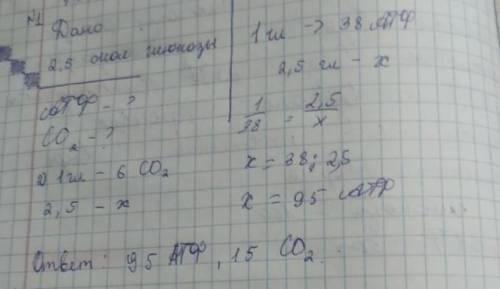 №1
Дано
2,5 моль глюкозы
АТФ - ?
CO₂ - ?
1 гл - 6 CO₂
2,5 - x
1 гл → 38 АТФ
2,5 гл - x
1/38 = 2,5/x
x = 38 ; 2,5
x = 95 АТФ
Ответ: 95 АТФ, 15 CO₂.